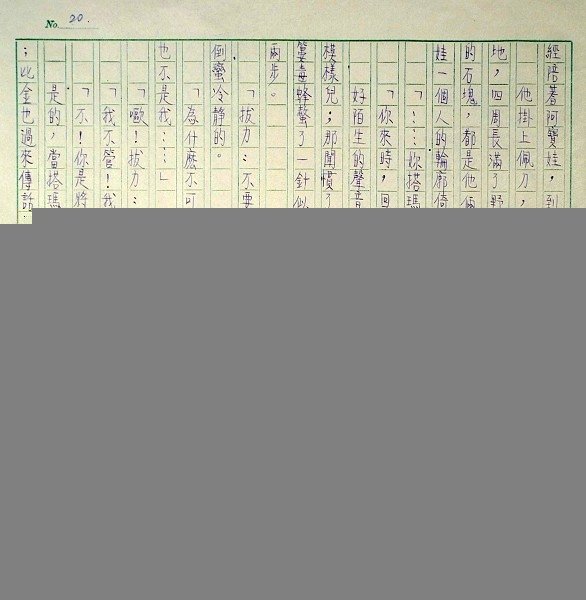 No. 20.
經陪著阿寶娃，到
他掛上佩刀，
地，四周長滿了野
的石塊，都是他
娃一個人的輪廓倚
「！……妳搭瑪
「你來時，回
好陌生的聲音
模樣兒；那聞慣了
蜂螫了一針似
兩步。
「拔力：不要
倒蠻冷靜的。
「為什麼不可
也不是我……」
「歐！拔力：
「我不管！我
「不！你是將
是的，當搭瑪
；比金也過來傳話